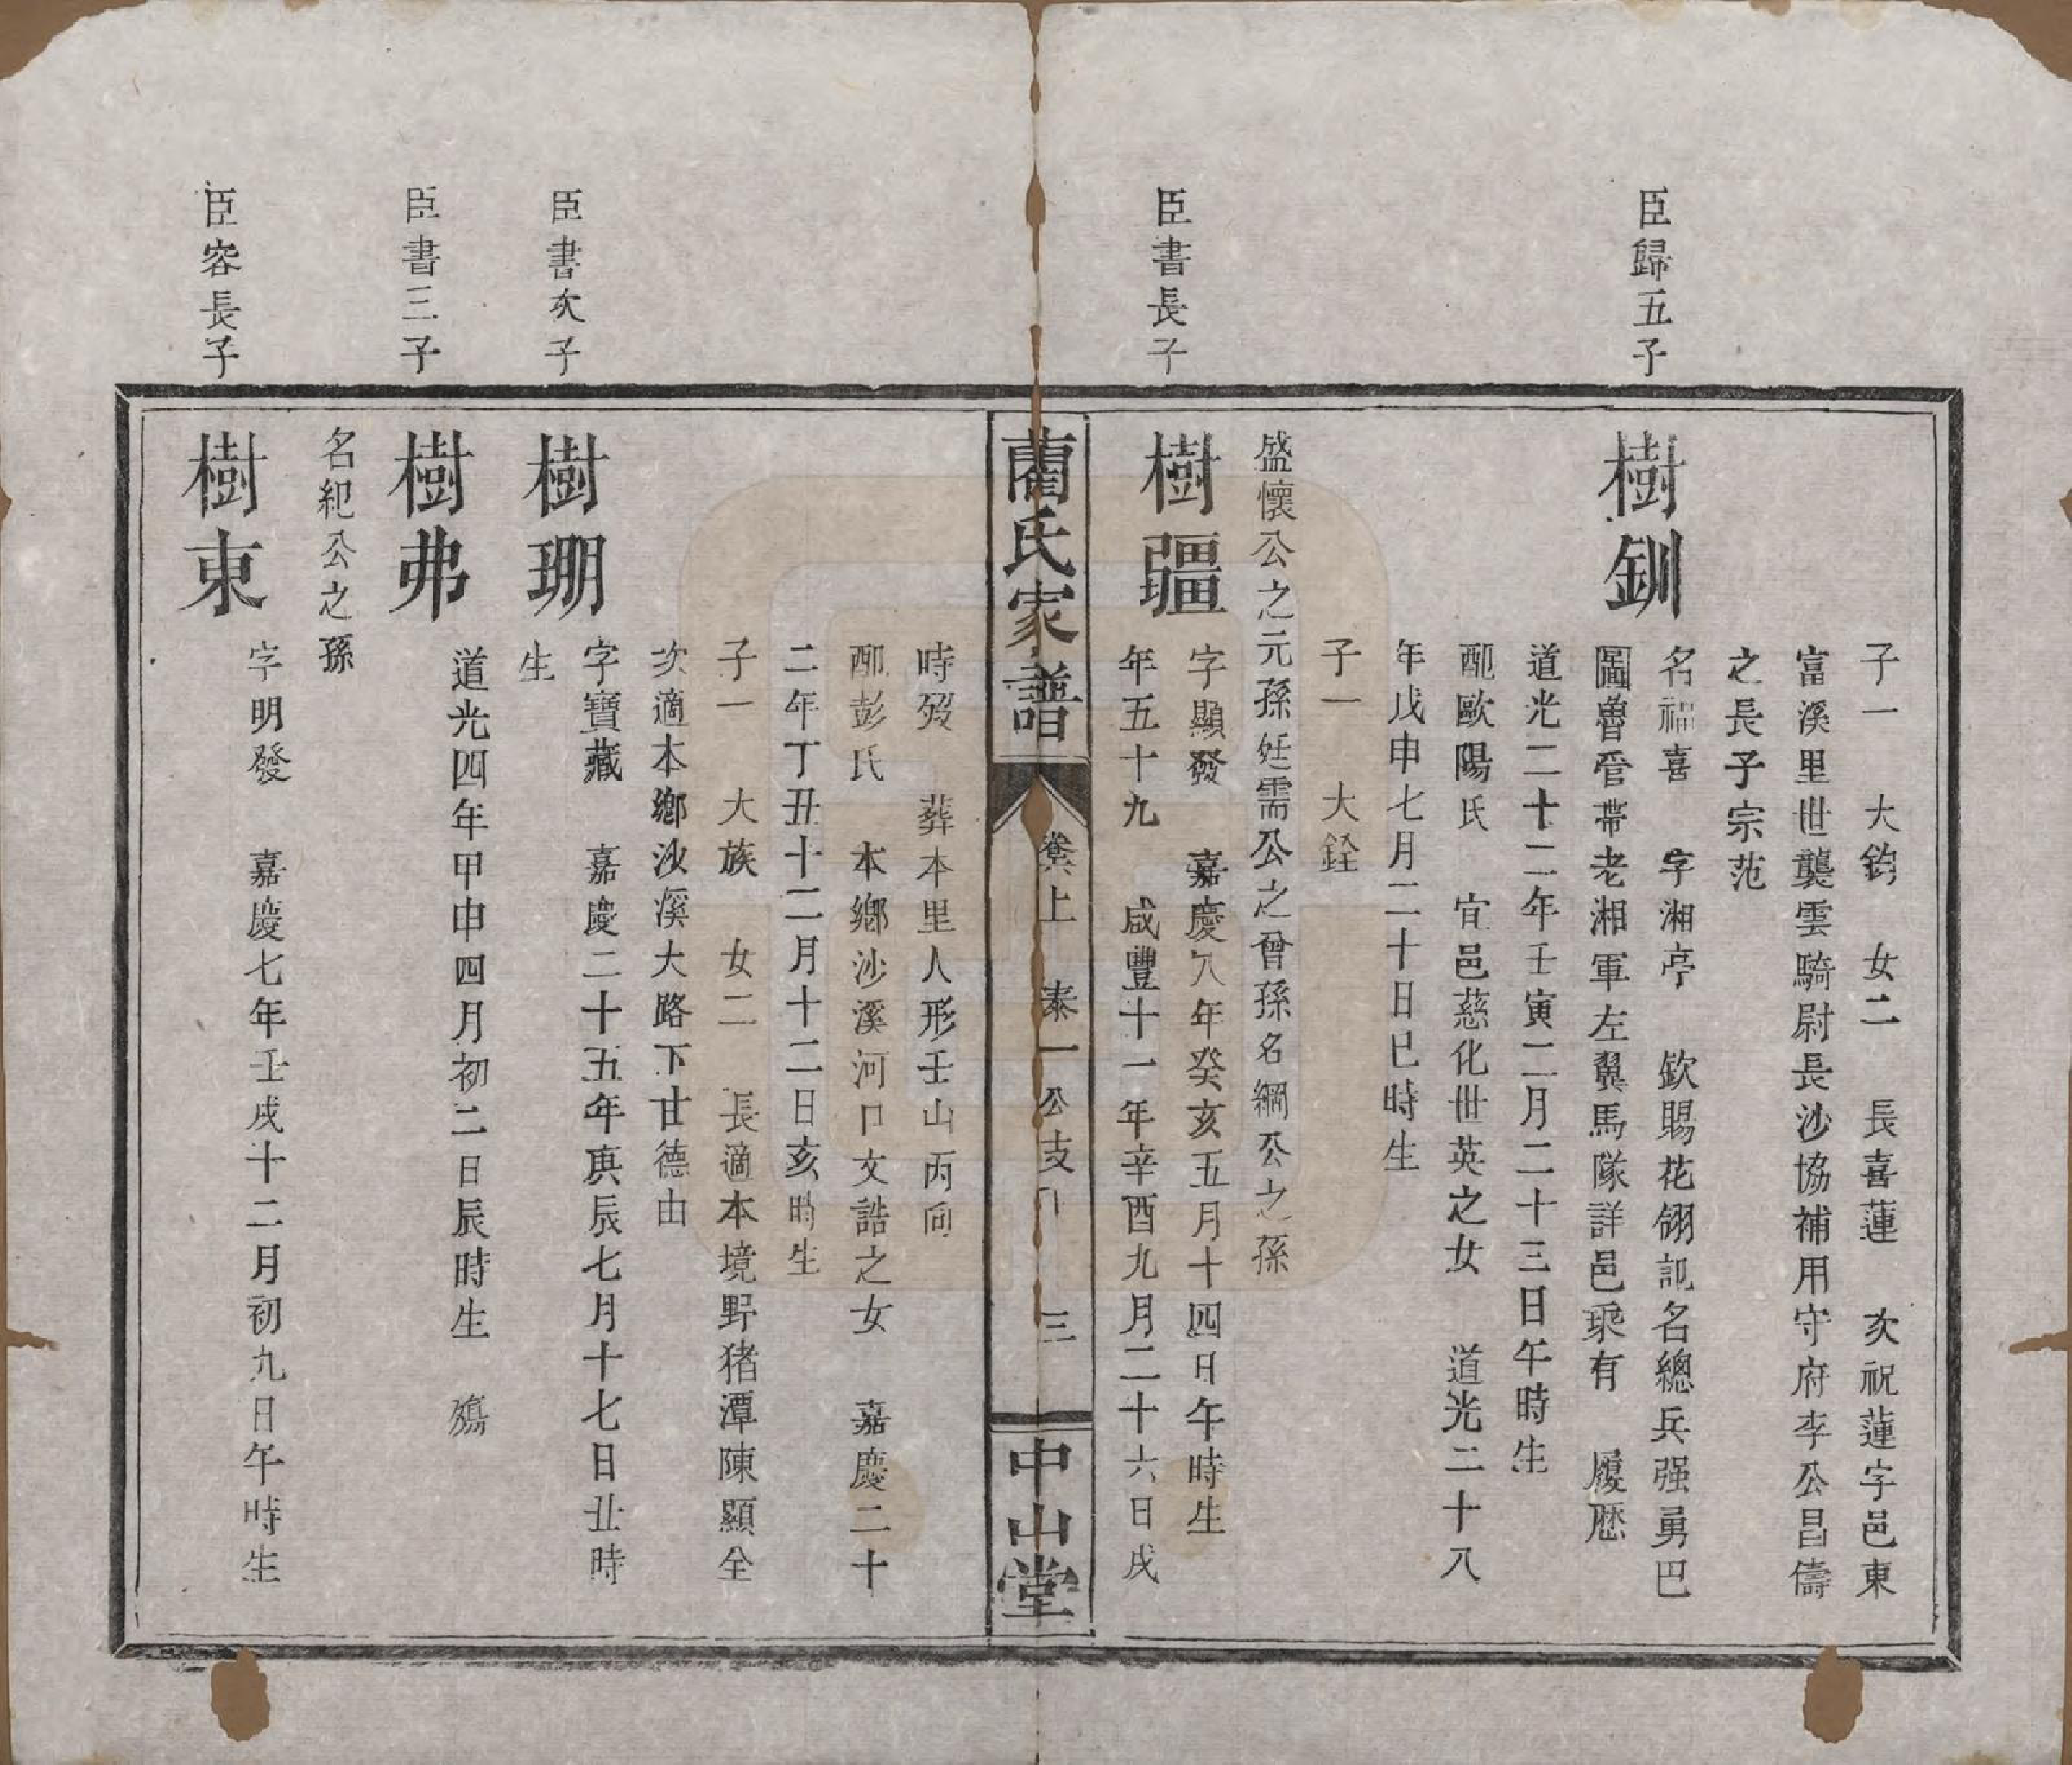 子一　大鈞　女二　長喜蓮　次祝蓮字邑東
富溪里世襲雲騎尉長沙協補用守府李公昌儔
之長子宗范
臣歸五子
樹釧
名福喜　字湘亭　欽賜花翎記名總兵强勇巴
圖魯管帶老湘軍左翼馬隊詳邑乘有　履歷
道光二十二年壬寅二月二十三日午時生
配歐陽氏　宜邑慈化世英之女　道光二十八
年戊申七月二十日巳時生
子一　大銓
盛懷公之元孫廷需公之曾孫名綱公之孫
臣書長子
樹疆
字顯發　嘉慶八年癸亥五月十四日午時生
年五十九　咸豐十一年辛酉九月二十六日戌
藺氏家譜　卷上　泰一公支　三　中山堂
時歿　葬本里人形壬山丙向
配彭氏　本鄉沙溪河口文誥之女　嘉慶二十
二年丁丑十二月十二日亥時生
子一　大族　女二　長適本境野猪潭陳顯全
次適本鄉沙溪大路下甘德由
臣書次子
樹珊
字寶藏　嘉慶二十五年庚辰七月十七日丑時
生
臣書三子
樹弗
道光四年甲申四月初二日辰時生　殤
名紀公之孫
臣容長子
樹東
字明發　嘉慶七年壬戌十二月初九日午時生